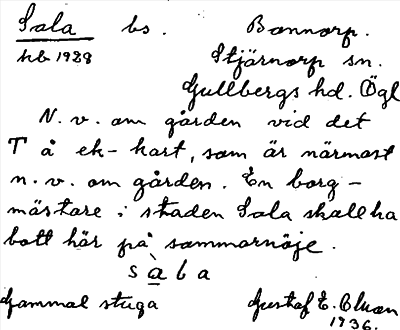 Sala bs. Bonnorp.
hb 1928 Stjärnorp sn.
Gullbergs hd. Ögl
N. v. om gården vid det
T å ek-kart, som är närmast
n. v. om gården. En borg-
mästare i staden Sala skall ha
bott här på sommarnöje.
Gammal stuga Gustaf E.
1936.